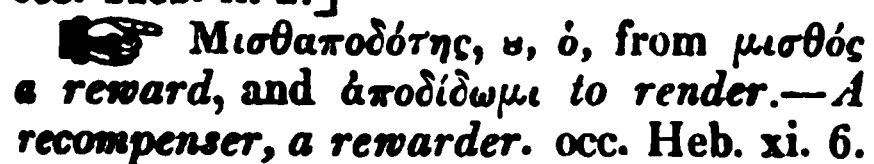 ☞ Μισθαποδότης, ȣ, ὁ, from μισθός
a reward, and ἀποδίδωμι to render.—A
recompenser, a rewarder. occ. Heb. xi. 6.